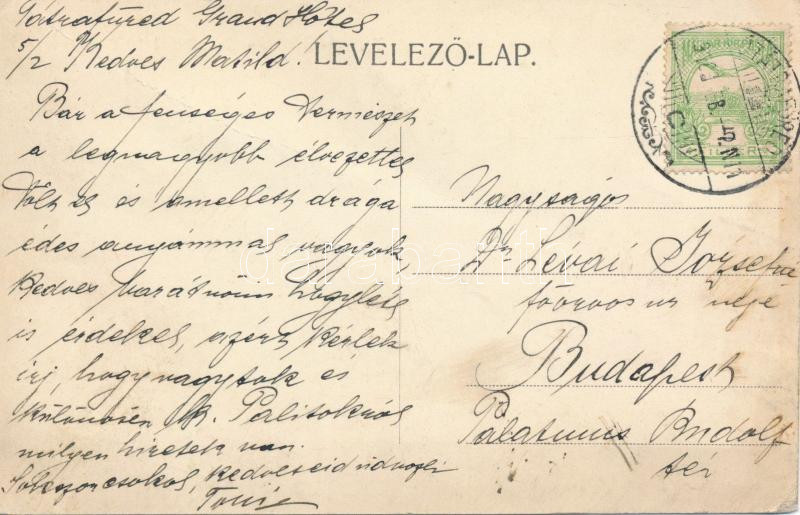 Tátrafüred Grand Hôtel
5/2 Kedves Matild!
LEVELEZŐ-LAP.
Bár a fenséges természet
a legnagyobb élvezettel
tölt el és amellett drága
édes anyámmal vagyok
kedves barátnőim hogyléte
is érdekel, azért kérlek
írj, hogy vagytok és
különösen k. Palitokról
milyen híretek van.
Sokszor csókol, kedveseid üdvözli
Nagyságos
Dr Lévai Józsefné
főorvos úr neje
Budapest
Palatinus Rudolf
tér